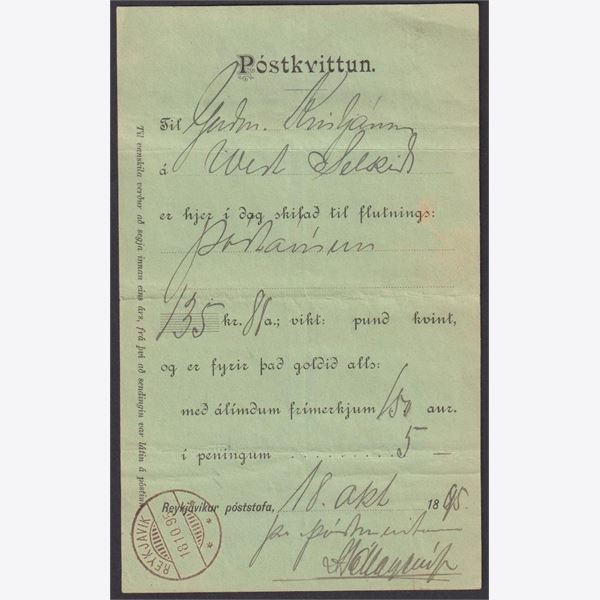 Póstkvittun.
Til Guðm.
á West Selkirk
er hjer í dag skilað til flutnings:
Póstávísun
135 kr. 81 a.; vikt: pund kvint,
og er fyrir það goldið alls:
með álímdum frímerkjum 150 aur.
í peningum . . . . . . . . . 5 —
Reykjavíkur póststofa, 18. okt 1895.
pr. póstmeistara
Til vanskila verður að segja innan eins árs, frá því að sendingin var látin á póstinn.
REYKJAVIK
18.10.95